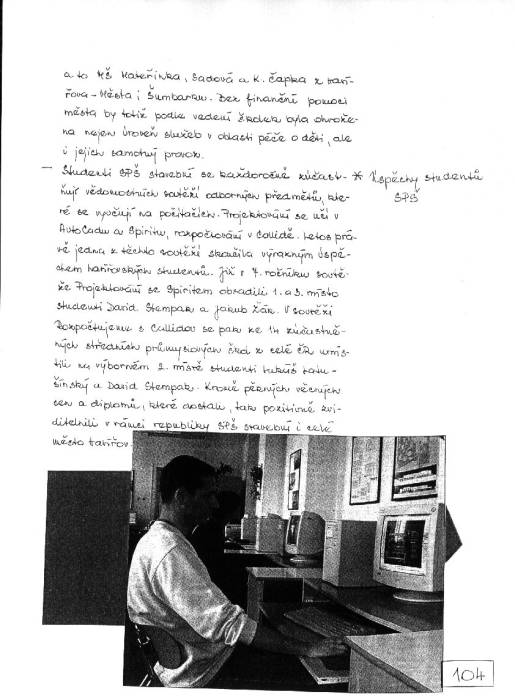 a to MŠ Mateřinka, Sadová a K. Čapka z Haví-
řova - Města i Šumbarku. Bez finanční pomoci
města by totiž podle vedení školek byla ohrože-
na nejen úroveň služeb v oblasti péče o děti, ale
i jejich samotný provoz.
— Studenti SPŠ stavební se každoročně zúčast- * Úspěchy studentů
ňují vědomostních soutěží odborných předmětů, kte- SPŠ
ré se vyučují na počítačích. Projektování se učí v
AutoCadu a Spiritu, rozpočtování v Callidě. Letos prá-
vě jedna z těchto soutěží skončila výrazným úspě-
chem havířovských studentů. Již v 7. ročníku soutě-
že Projektování se Spiritem obsadili 1. a 3. místo
studenti David Stempak a Jakub Žák. V soutěži
Rozpočtujeme s Callidou se pak ze 14 zúčastně-
ných středních průmyslových škol z celé ČR umís-
tili na výborném 2. místě studenti Lukáš
a David Stempak. Kromě pěkných věcných
cen a diplomů, které dostali, tak pozitivně zvi-
ditelnili v rámci republiky SPŠ stavební i celé
město Havířov.
104